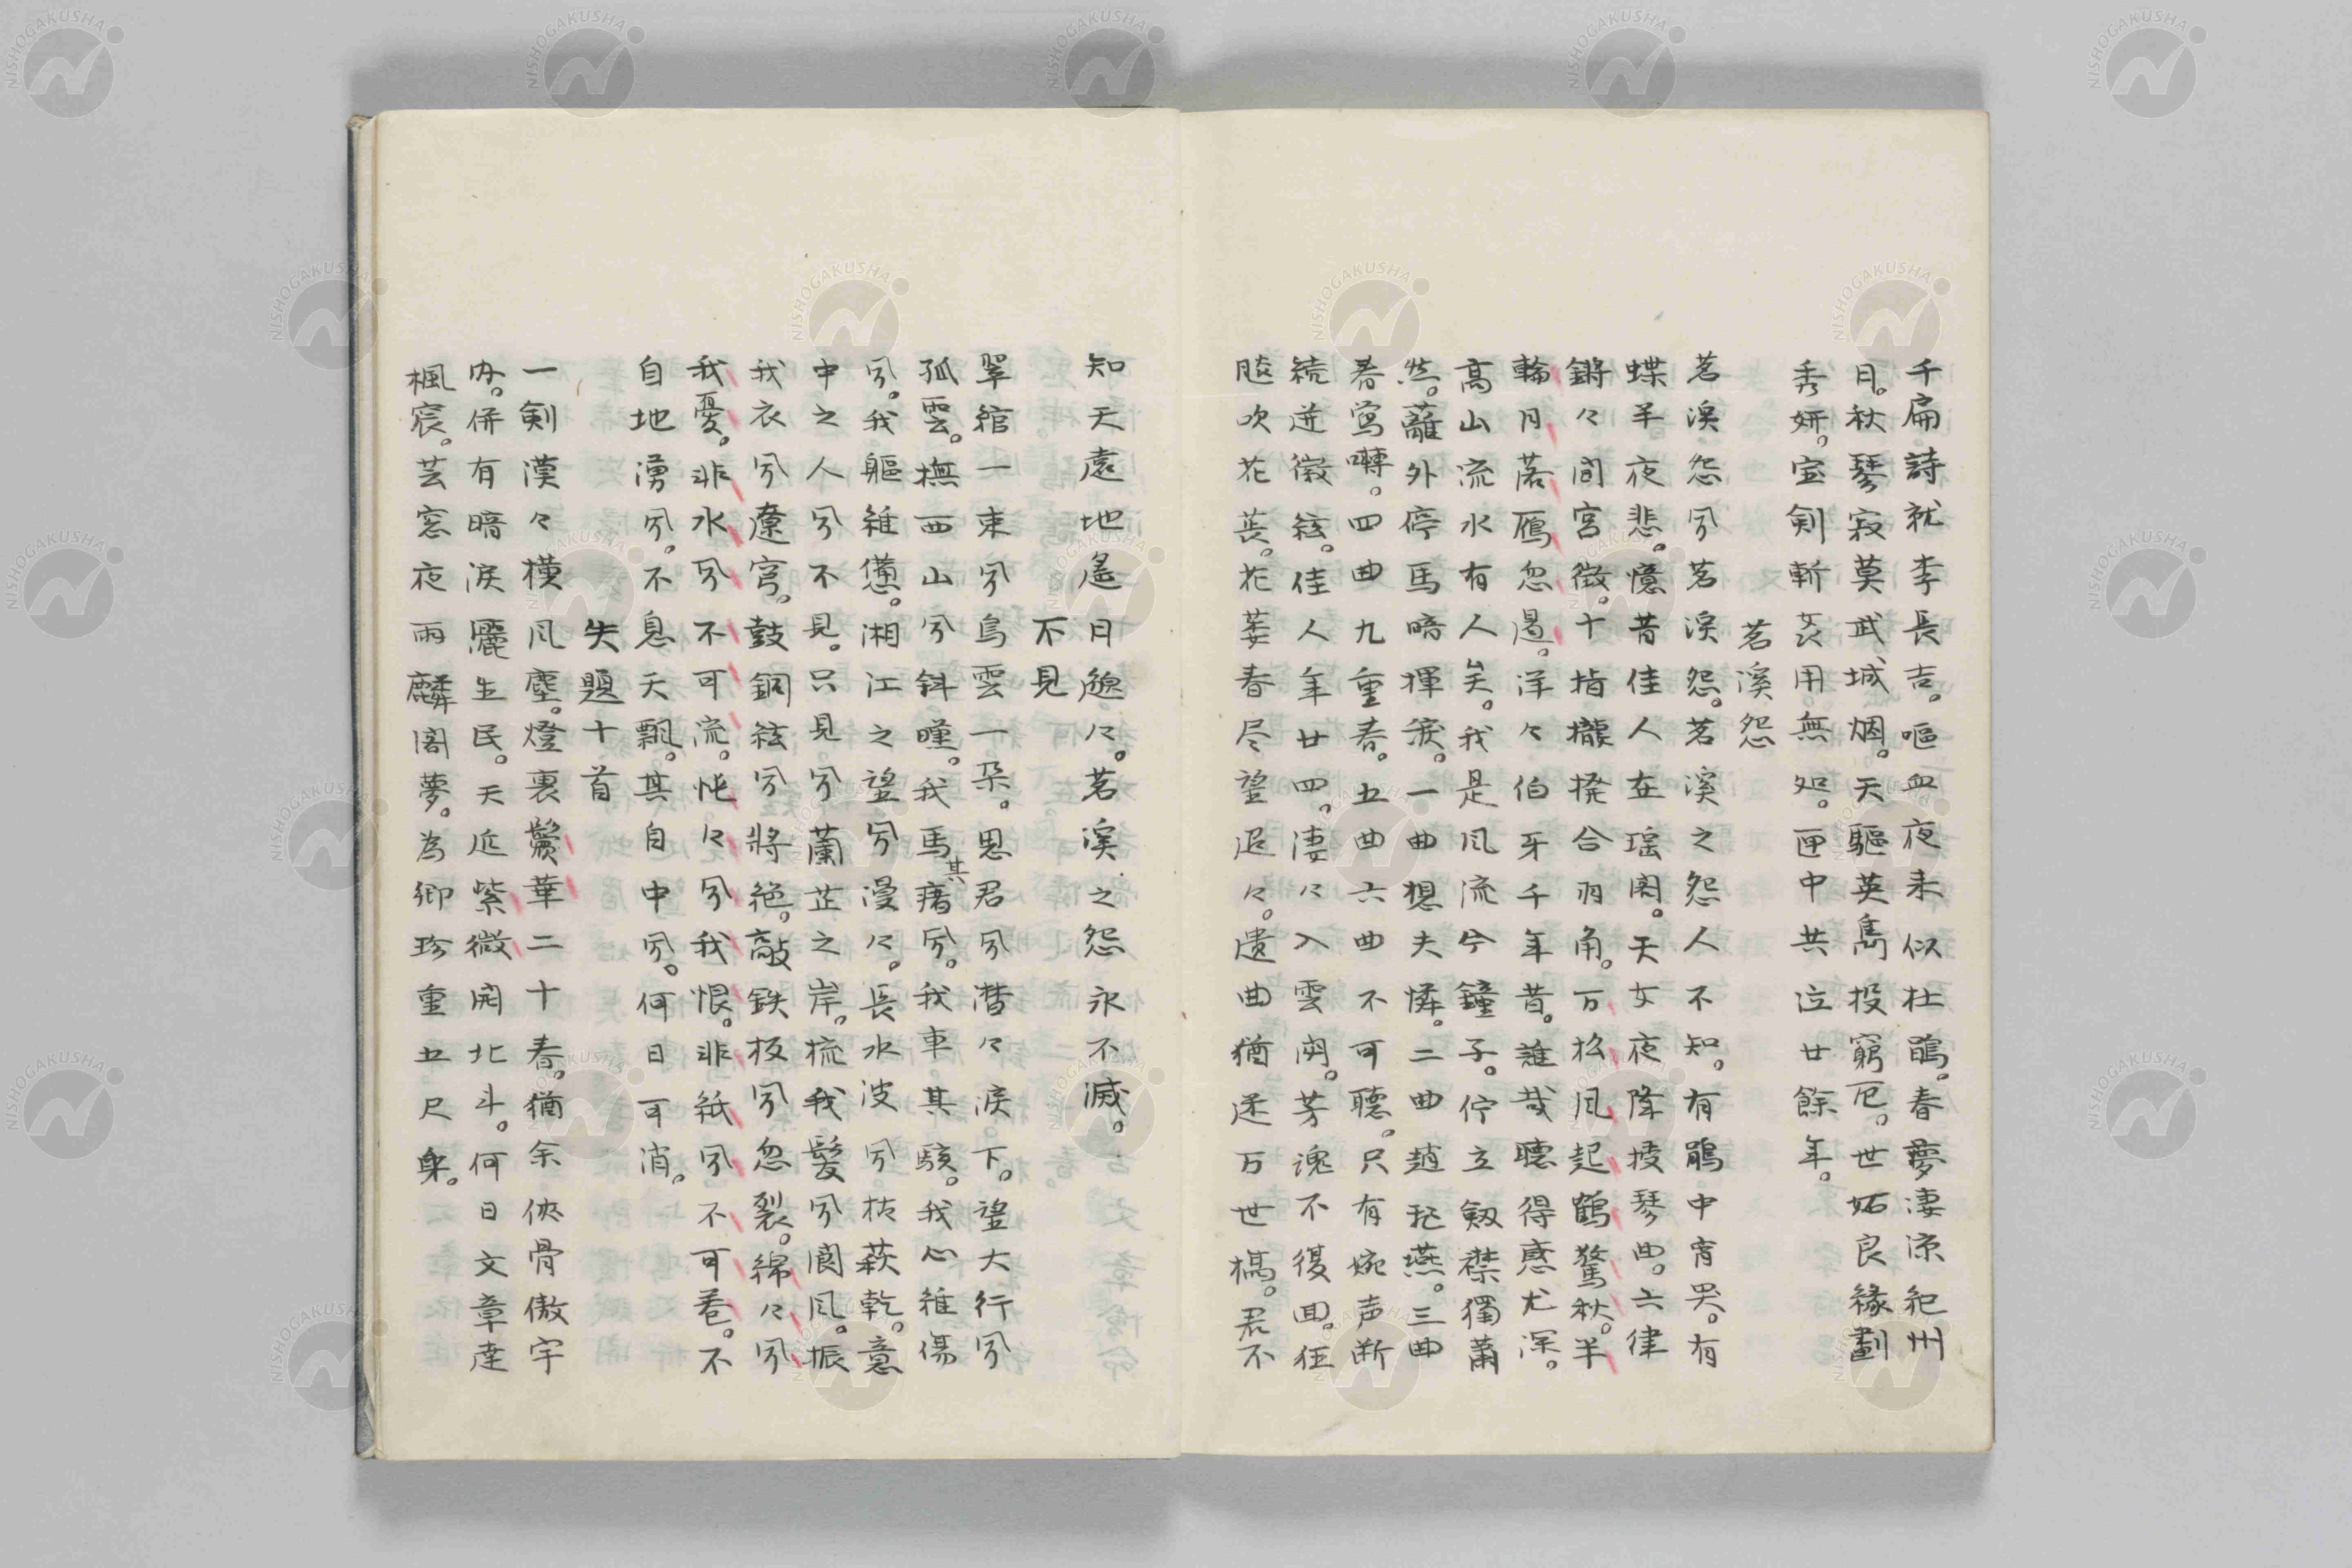 千扁詩就李長吉。嘔血夜未似杜鵑。春夢凄凉紀州
月。秋琴寂莫武城烟。天驅英雋投窮厄。世妬良縁劃
秀妍。宝剣斬衰用無処。匣中共泣廿餘年。
茗溪怨
茗溪怨兮茗溪怨。茗溪之怨人不知。有鵑中宵哭。有
蝶半夜悲。憶昔佳人在瑶閣。天女夜降援琴曲。六律
鏘々間宮徴。十指攏撓合羽角。万松風起鶴驚秋。半
輪月落雁忽過。洋々伯牙千年昔。誰哉聴得感尤深。
高山流水有人矣。我是風流今鐘子。佇立剱襟獨蕭
然。蘺外停馬暗揮涙。一曲想夫憐。二曲趙飛燕。三曲
春鶯囀。四曲九重春。五曲六曲不可聴。只有婉声断
続迸徽絃。佳人年廿四。凄々入雲閟。芳魂不復回。狂
飈吹花萎。花萎春尽望迢々。遺曲猶遂万世槁。君不
知天遠地遙日邈々。茗溪之怨永不滅。
不見
翠綰一束兮烏雲一朶。思君兮潸々涙下。望大行兮
孤雲。撫西山兮斜曛。我馬其瘏兮。我車其駭。我心雖傷
兮。我軀雖憊。湘江之望兮漫々。長水波兮枯萩乾。意
中之人兮不見。只見兮蘭芷之岸。梳我髪兮閬風。振
我衣兮遼穹。鼓銅絃兮将絶。敲鉄板兮忽裂。綿々兮
我憂。非水兮不可流。忳々兮我恨。非紙兮不可巻。不
自地湧兮。不息天飄。其自中兮。何日可消。
失題十首
一剣漠々横風塵。燈裏鬢華二十春。猶余侠骨傲宇
内。併有暗涙灑生民。天庭紫微開北斗。何日文章達
楓宸。芸窓夜雨麟閣夢。為卿珍重五尺身。
NISHOGAKUSHA